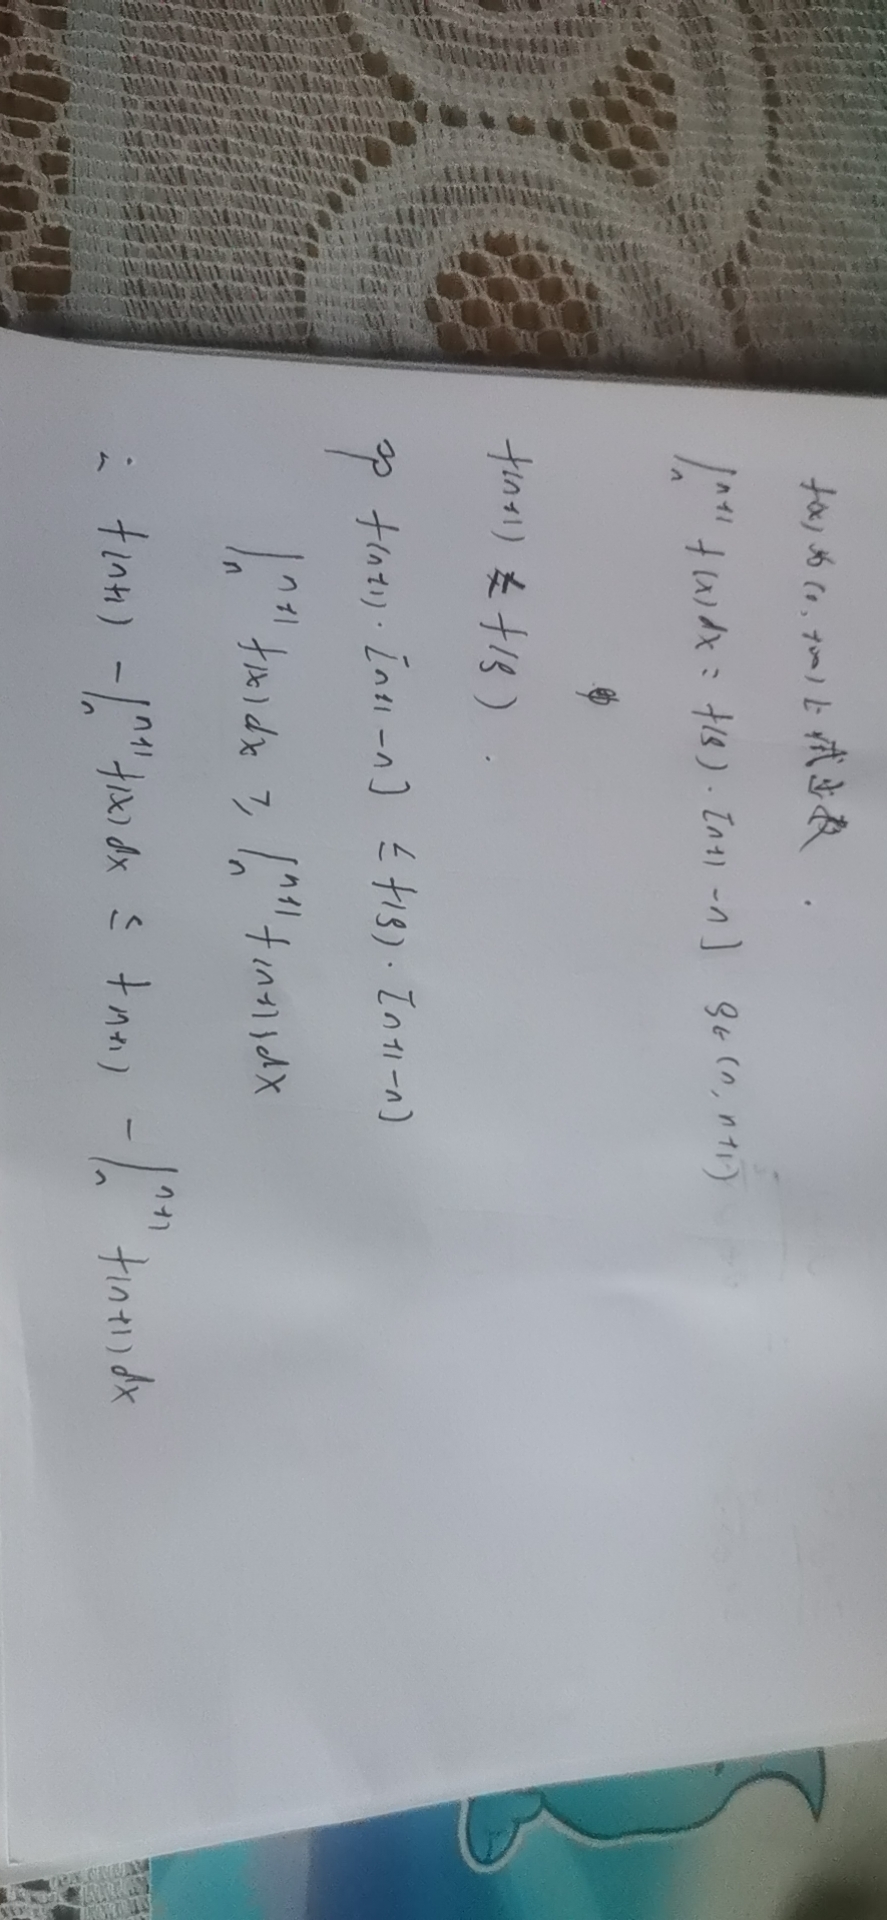 f(x)为(0,+∞)上减函数.
∫ₙⁿ⁺¹ f(x)dx = f(ξ)·[n+1-n] ξ∈(n,n+1)
f(n+1) ≤ f(ξ).
即 f(n+1)·[n+1-n] ≤ f(ξ)·[n+1-n]
∫ₙⁿ⁺¹ f(x)dx ≥ ∫ₙⁿ⁺¹ f(n+1)dx
∴ f(n+1) - ∫ₙⁿ⁺¹ f(x)dx ≤ f(n+1) - ∫ₙⁿ⁺¹ f(n+1)dx